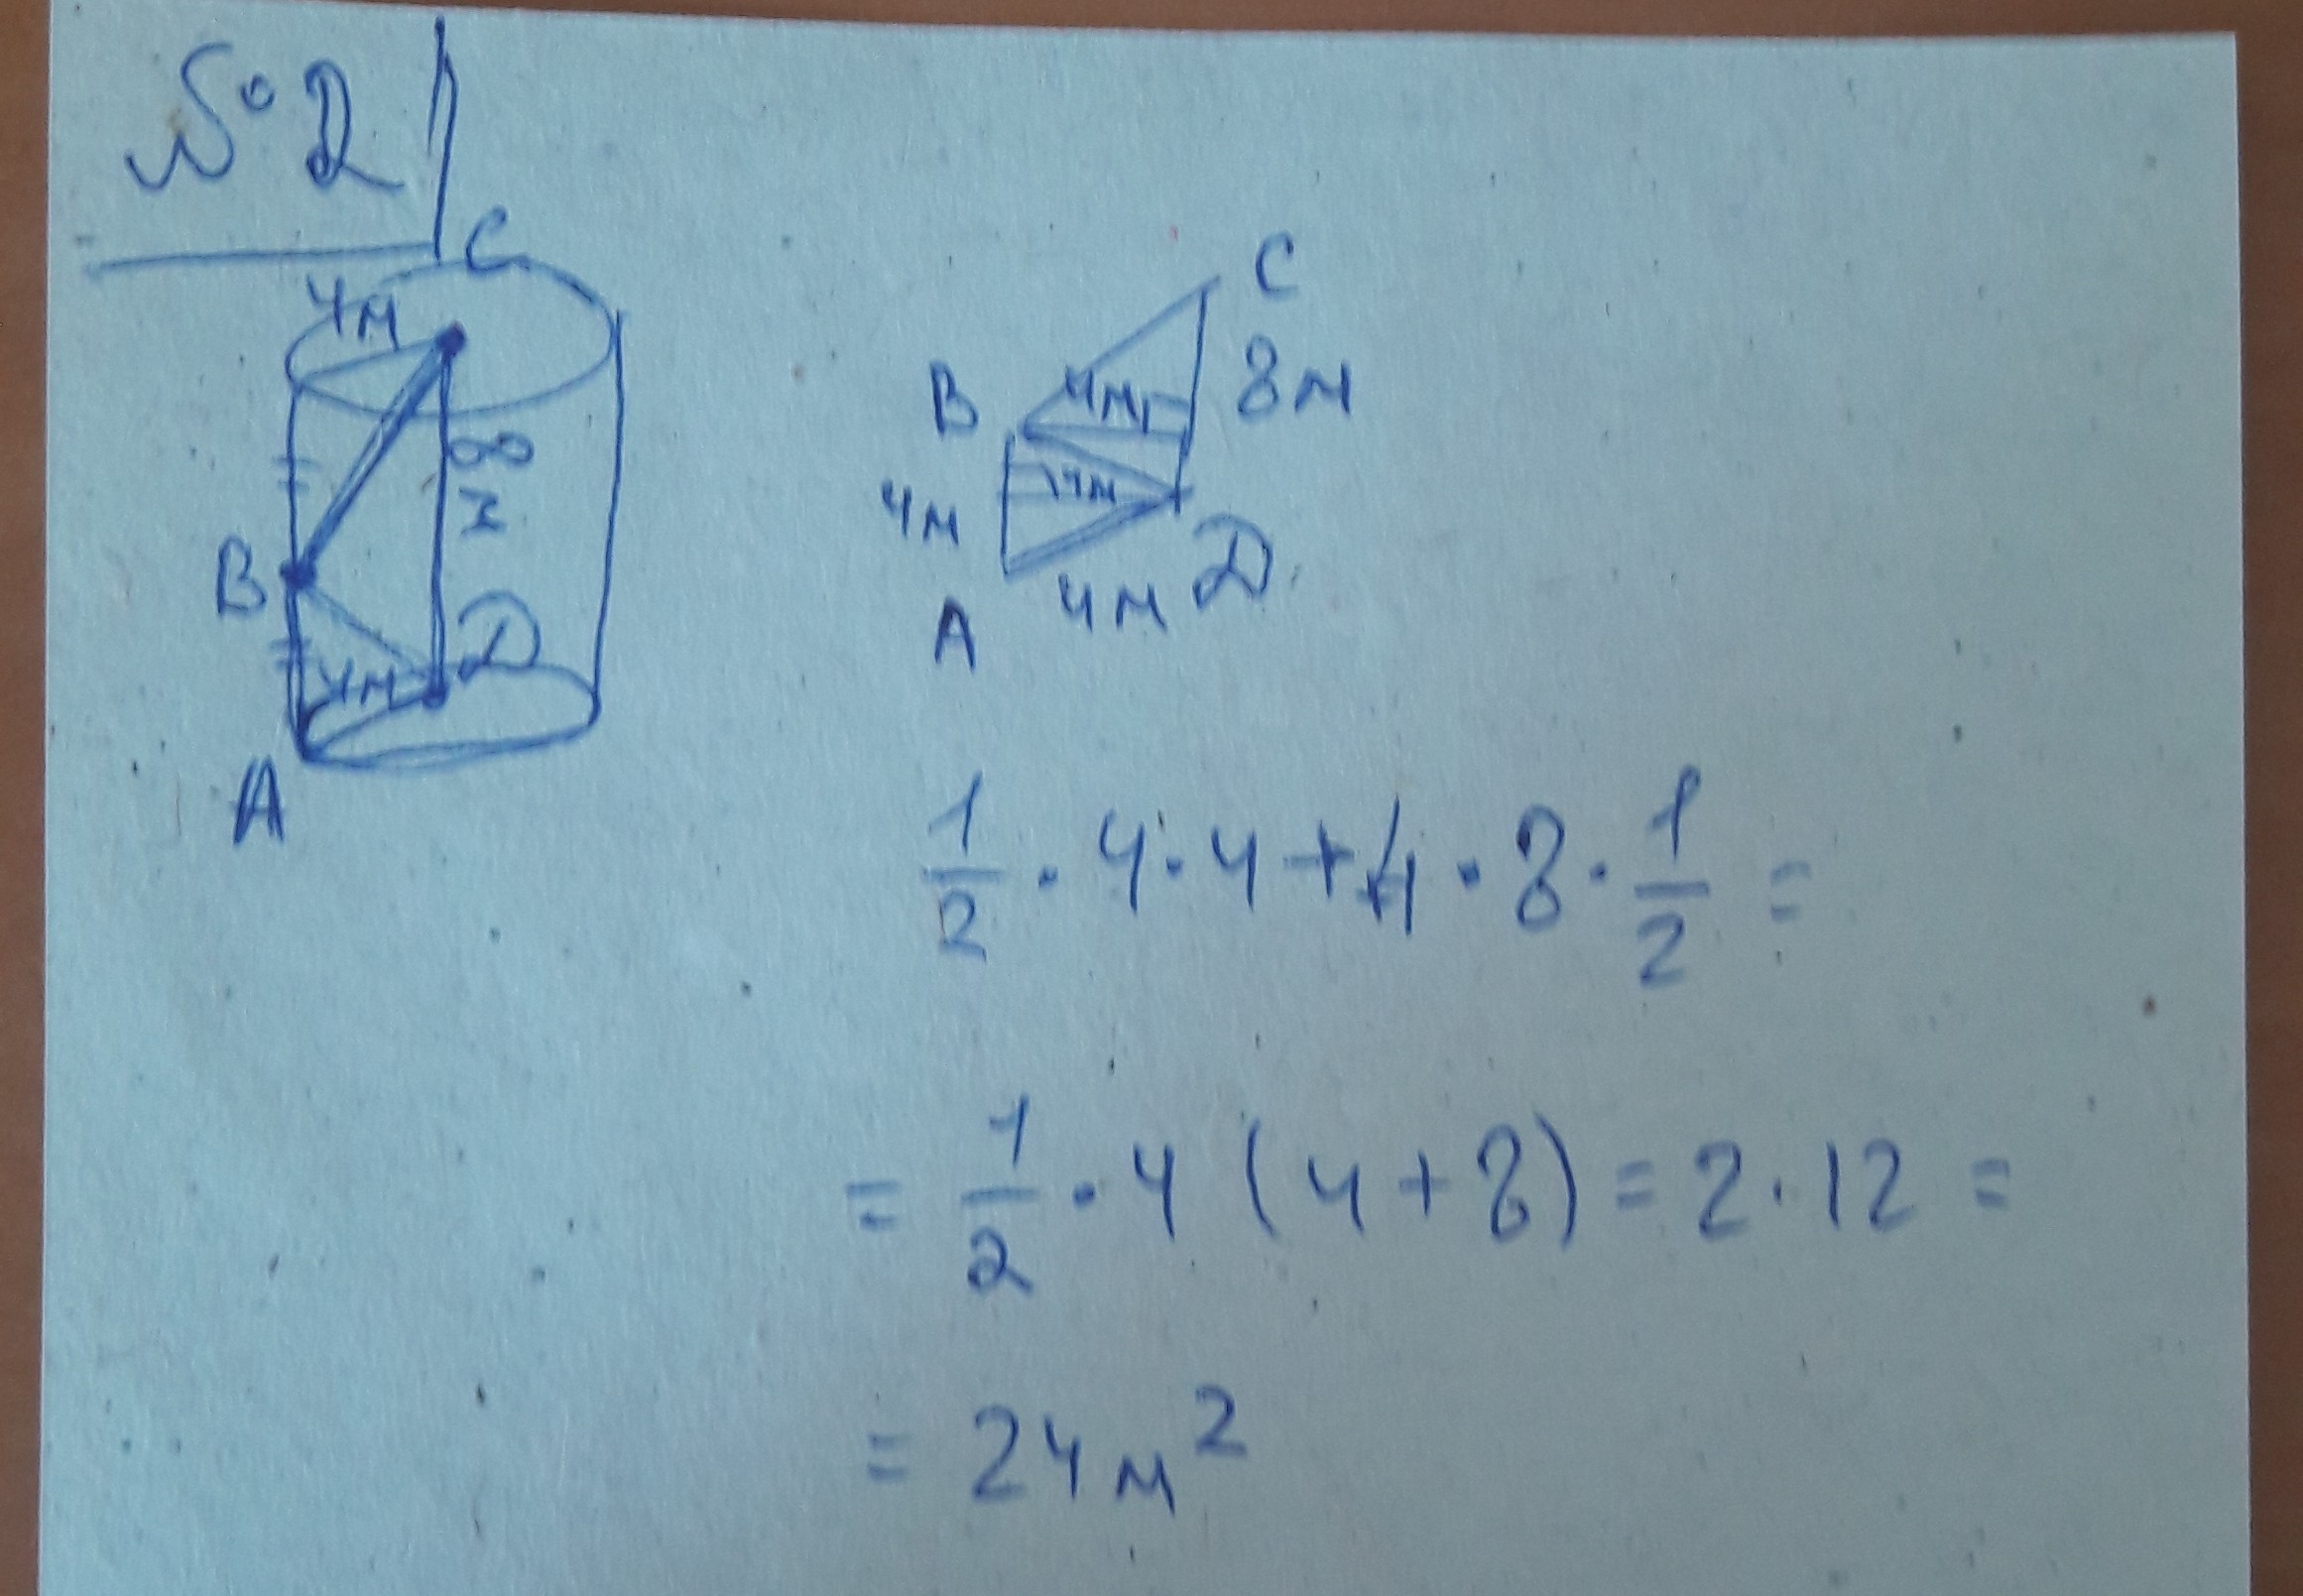 №2
C
4м
8м
B
D
4м
A
C
B 4м 8м
4м 4м
D
4м
A
1/2 · 4 · 4 + 4 · 8 · 1/2 =
= 1/2 · 4 (4 + 8) = 2 · 12 =
= 24 м²